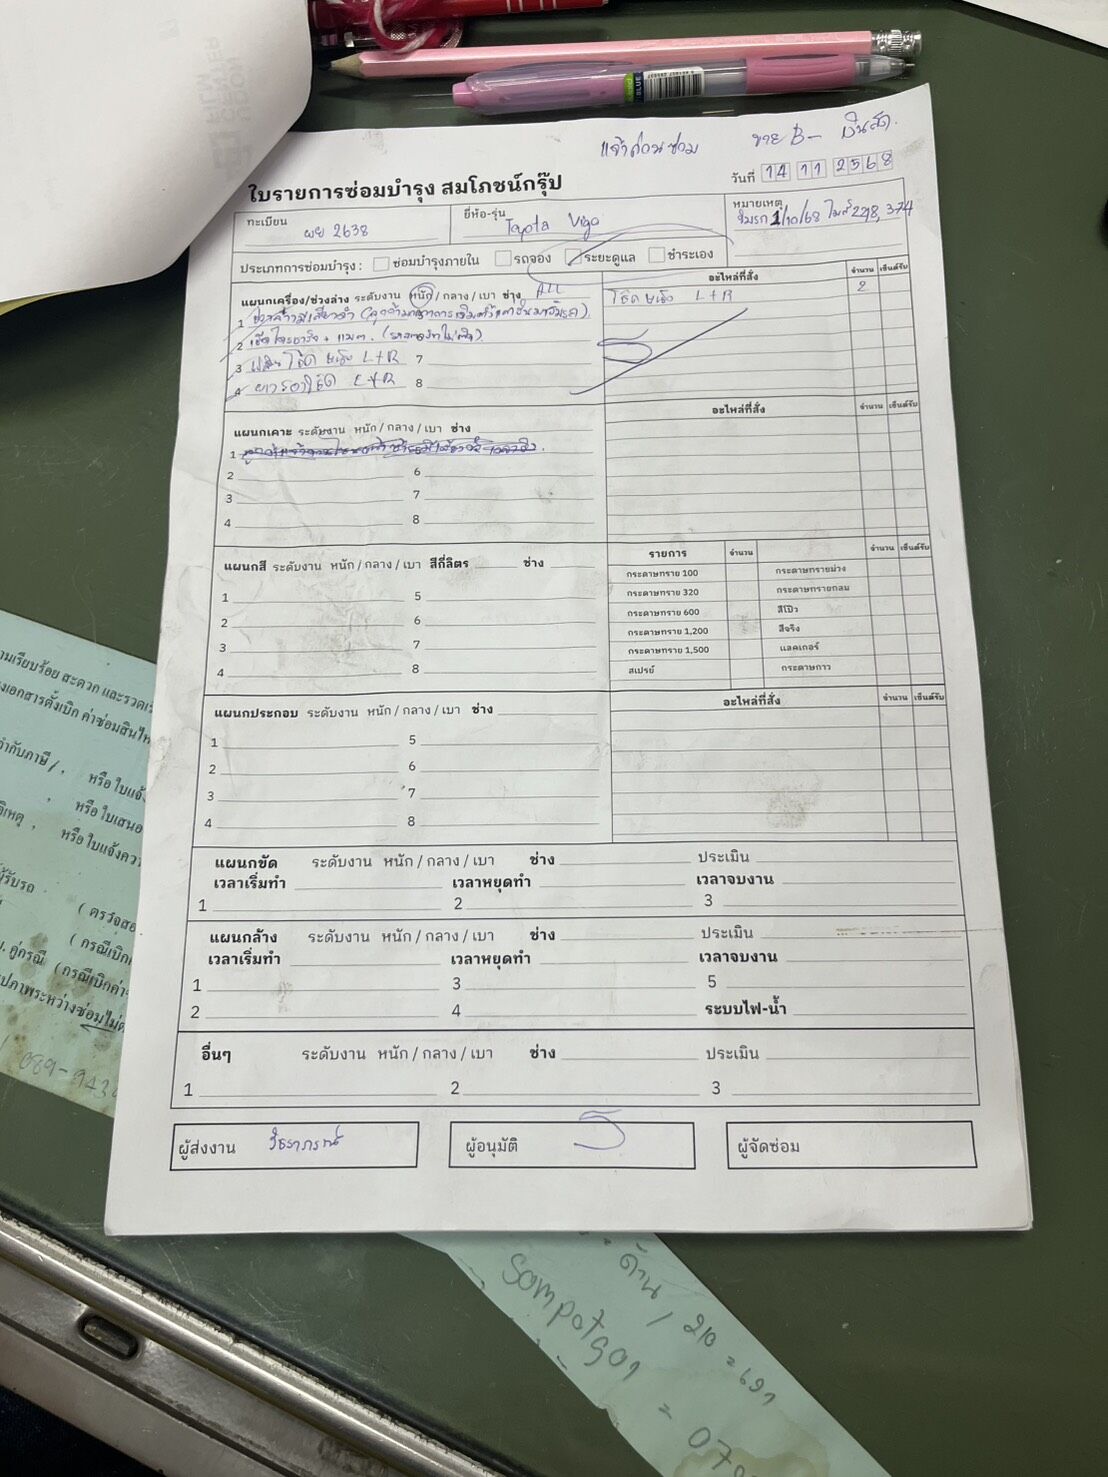 แจ้งก่อนซ่อม ขาย B- เงินสด.
ใบรายการซ่อมบำรุง สมโภชน์กรุ๊ป
วันที่ 14 11 2568
ทะเบียน ผย 2638
ยี่ห้อ-รุ่น Toyota Vigo
หมายเหตุ
ซื้อรถ 1/10/68 ไมล์ 228,374
ประเภทการซ่อมบำรุง : ซ่อมบำรุงภายใน รถจอง ระยะดูแล ชำระเอง
แผนกเครื่อง/ช่วงล่าง ระดับงาน หนัก / กลาง / เบา ช่าง ALL
อะไหล่ที่สั่ง จำนวน เซ็นต์รับ
โช๊คหลัง L+R 2
1
2
3 เปลี่ยนโช๊คหลัง L+R 7
4 ยางรองโช๊ค L+R 8
แผนกเคาะ ระดับงาน หนัก / กลาง / เบา ช่าง
อะไหล่ที่สั่ง จำนวน เซ็นต์รับ
1
2 6
3 7
4 8
แผนกสี ระดับงาน หนัก / กลาง / เบา สีกี่ลิตร ช่าง
1 5
2 6
3 7
4 8
รายการ จำนวน จำนวน เซ็นต์รับ
กระดาษทราย 100 กระดาษทรายม่วง
กระดาษทราย 320 กระดาษทรายกลม
กระดาษทราย 600 สีโป๊ว
กระดาษทราย 1,200 สีจริง
กระดาษทราย 1,500 แลคเกอร์
สเปรย์ กระดาษกาว
แผนกประกอบ ระดับงาน หนัก / กลาง / เบา ช่าง
อะไหล่ที่สั่ง จำนวน เซ็นต์รับ
1 5
2 6
3 7
4 8
แผนกขัด ระดับงาน หนัก / กลาง / เบา ช่าง ประเมิน
เวลาเริ่มทำ เวลาหยุดทำ เวลาจบงาน
1 2 3
แผนกล้าง ระดับงาน หนัก / กลาง / เบา ช่าง ประเมิน
เวลาเริ่มทำ เวลาหยุดทำ เวลาจบงาน
1 3 5
2 4 ระบบไฟ-น้ำ
อื่นๆ ระดับงาน หนัก / กลาง / เบา ช่าง ประเมิน
1 2 3
ผู้ส่งงาน วิธราภรณ์
ผู้อนุมัติ
ผู้จัดซ่อม
ามเรียบร้อย สะดวก และรวดเร็
งเอกสารตั้งเบิก ค่าซ่อมสินไห
ำกับภาษี / , หรือ ใบแจ้ง
, หรือ ใบเสนอ
ติเหตุ , หรือ ใบแจ้งควา
ู้รับรถ
( ตรวจสอ
( กรณีเบิก
. คู่กรณี (กรณีเบิกค่า
ปภาพระหว่างซ่อมไม่
089-943
ด้าน / 210 = 691